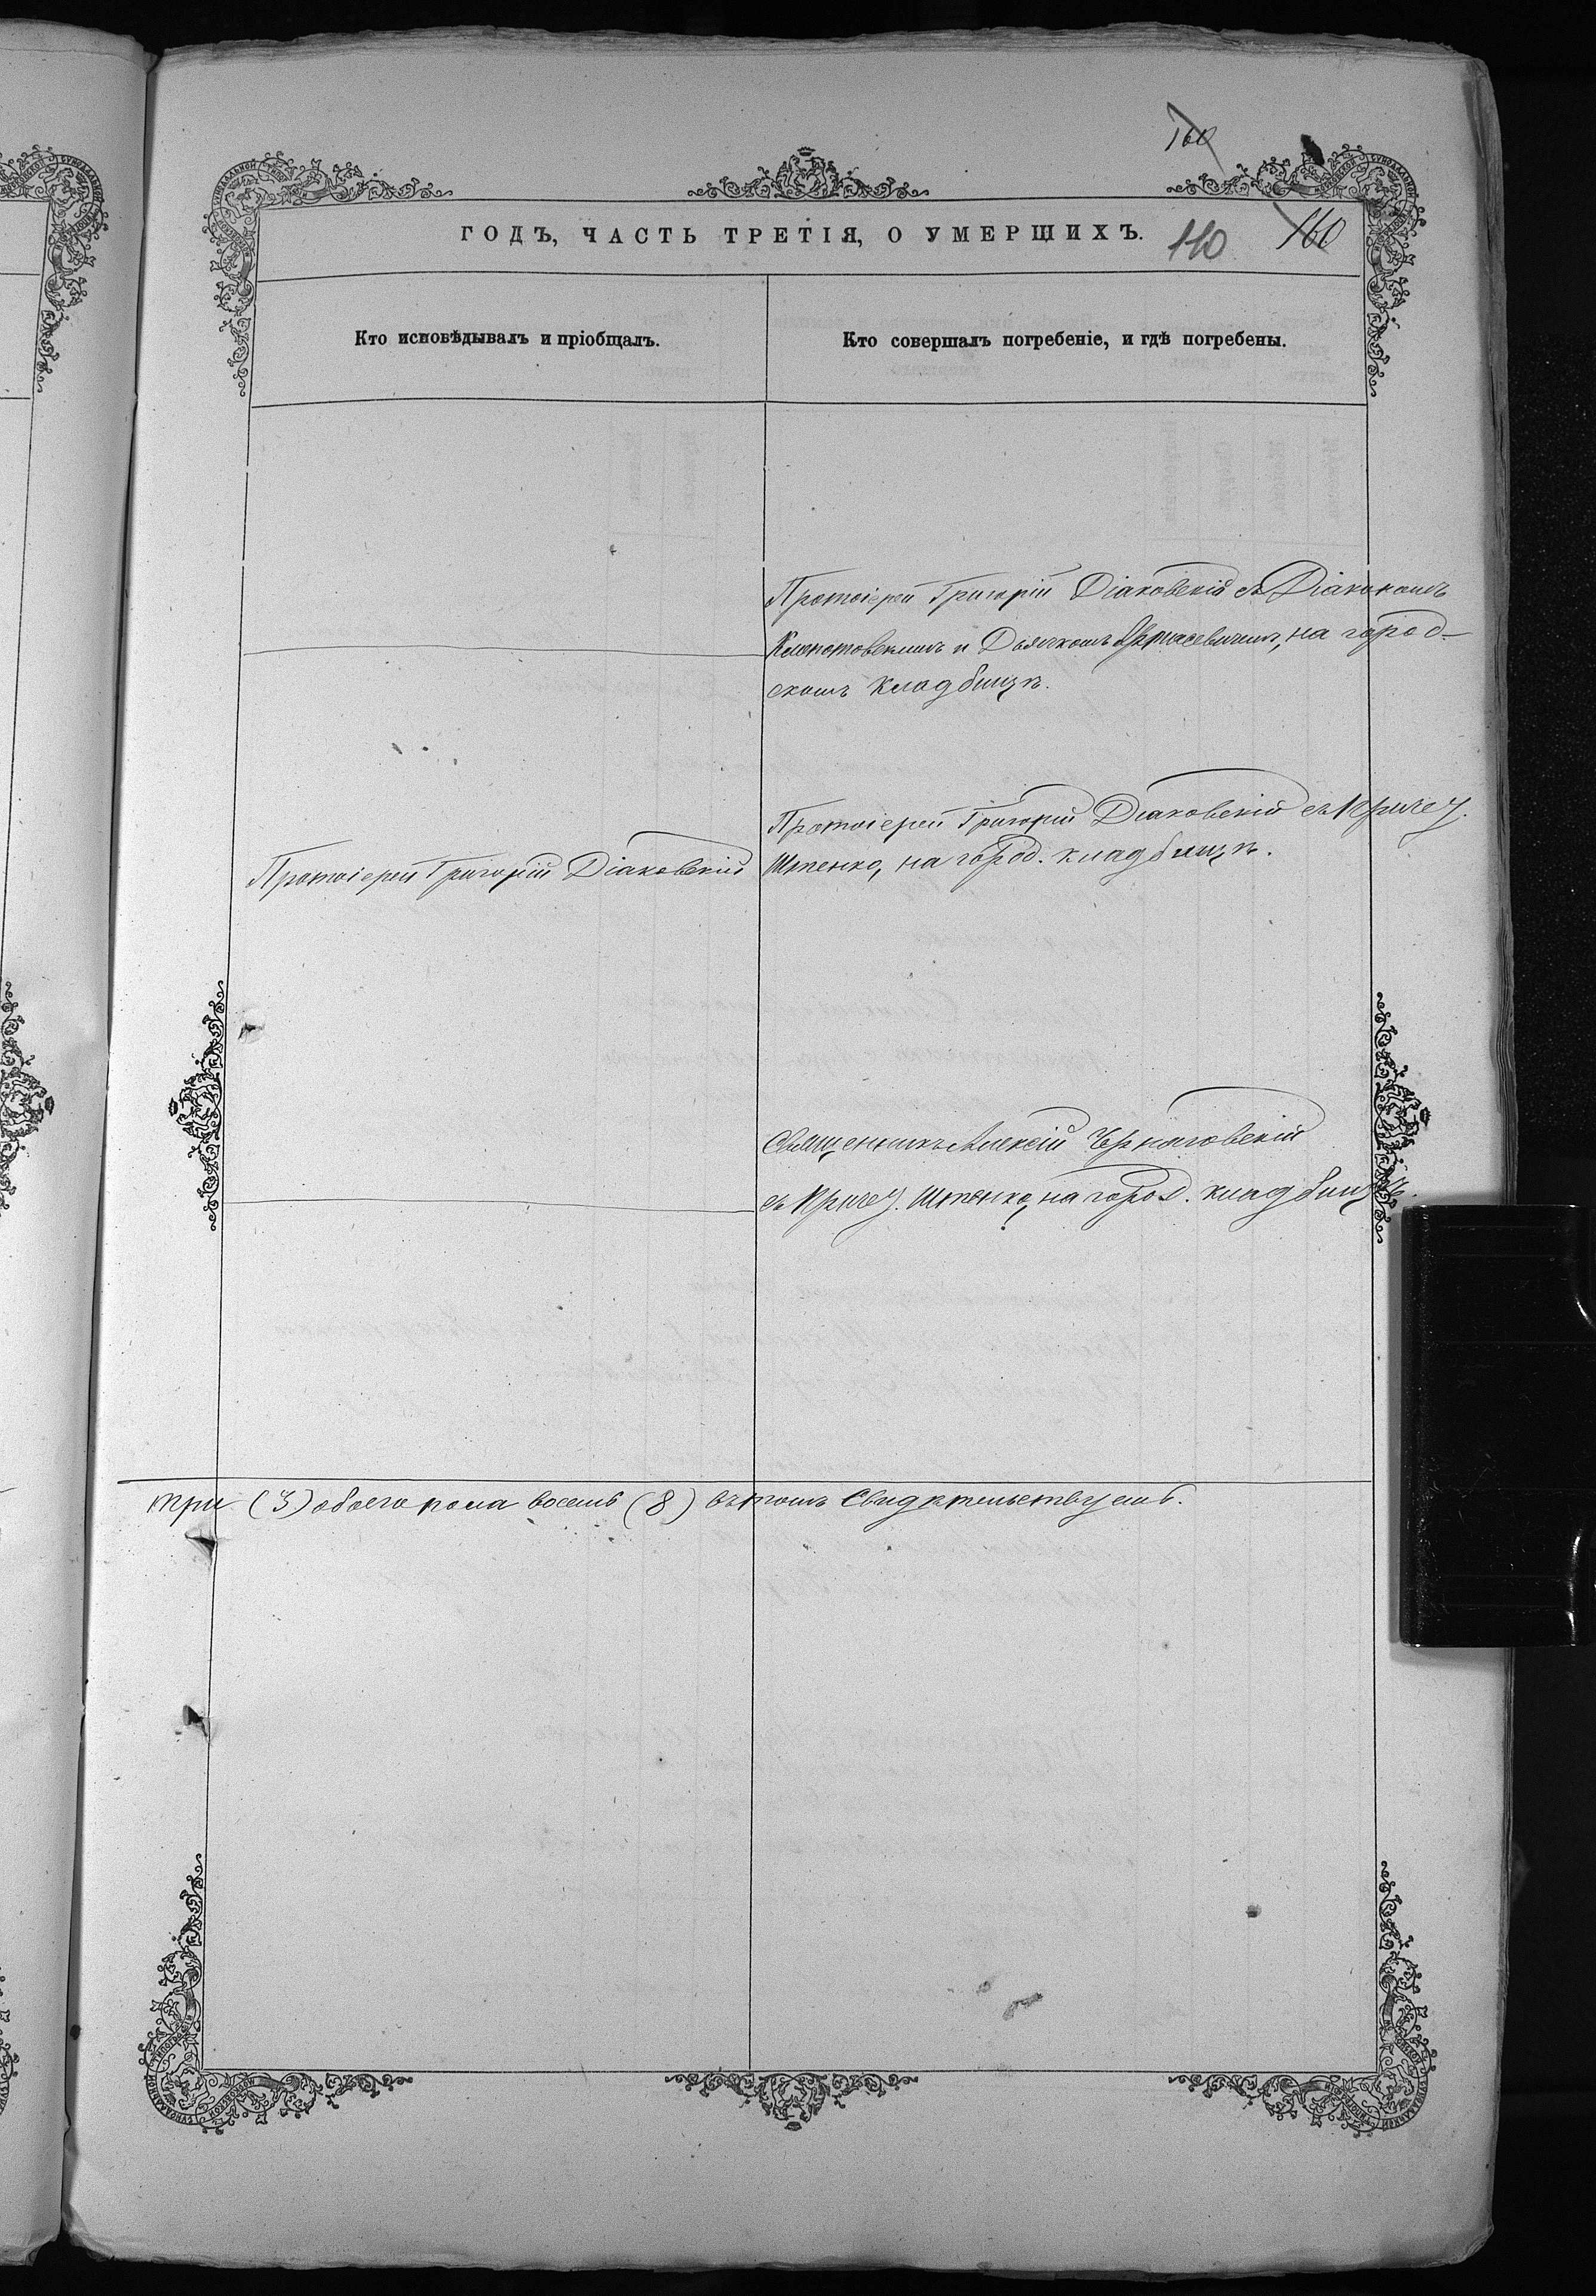 160
ГОДЪ, ЧАСТЬ ТРЕТІЯ, О УМЕРШИХЪ. 110 160
Кто исповѣдывалъ и пріобщалъ.
Кто совершалъ погребеніе, и гдѣ погребены.
Протоіерей Григорій Діаковскій съ Діакономъ
и Дьячкомъ на город-
скомъ кладбищѣ.
Протоіерей Григорій Діаковскій
Протоіерей Григорій Діаковскій съ Причет.
Штенко, на город. кладбищѣ.
Священникъ Алексій
съ Причет. Штенко, на город. кладбищѣ.
три (3) обоего пола восемь (8) въ томъ свидѣтельствуемъ.